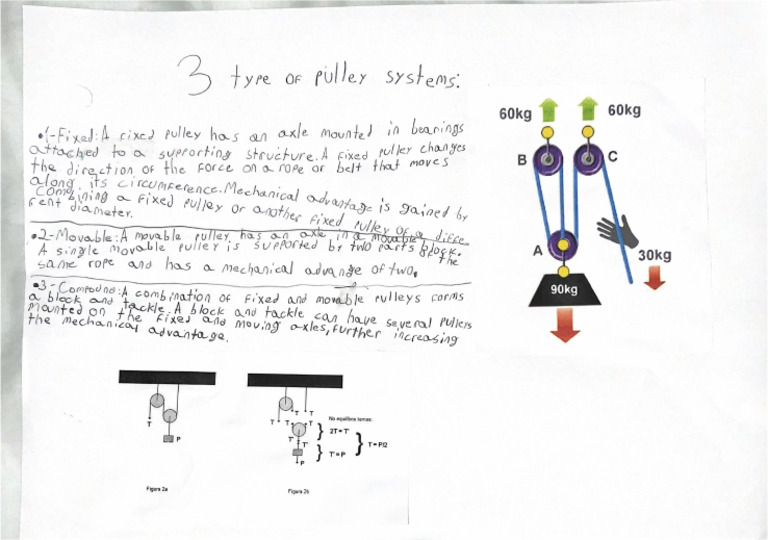 3 type of pulley systems:
•1-Fixed: A fixed pulley has an axle mounted in bearings
attached to a supporting structure. A fixed pulley changes
the direction of the force on a rope or belt that moves
along its circumference. Mechanical advantage is gained by
combining a fixed pulley or another fixed pulley of a diffe-
rent diameter.
•2-Movable: A movable pulley has an axle in a movable block.
A single movable pulley is supported by two parts of the
same rope and has a mechanical advange of two.
•3-Compound: A combination of fixed and movable pulleys forms
a block and tackle. A block and tackle can have several pulleys
mounted on the fixed and moving axles, further increasing
the mechanical advantage.
60kg
60kg
B
C
A
30kg
90kg
T
P
Figura 2a
T
T
T
T
T'
T'
P
No equilíbrio temos:
2T = T'
T' = P
T = P/2
Figura 2b